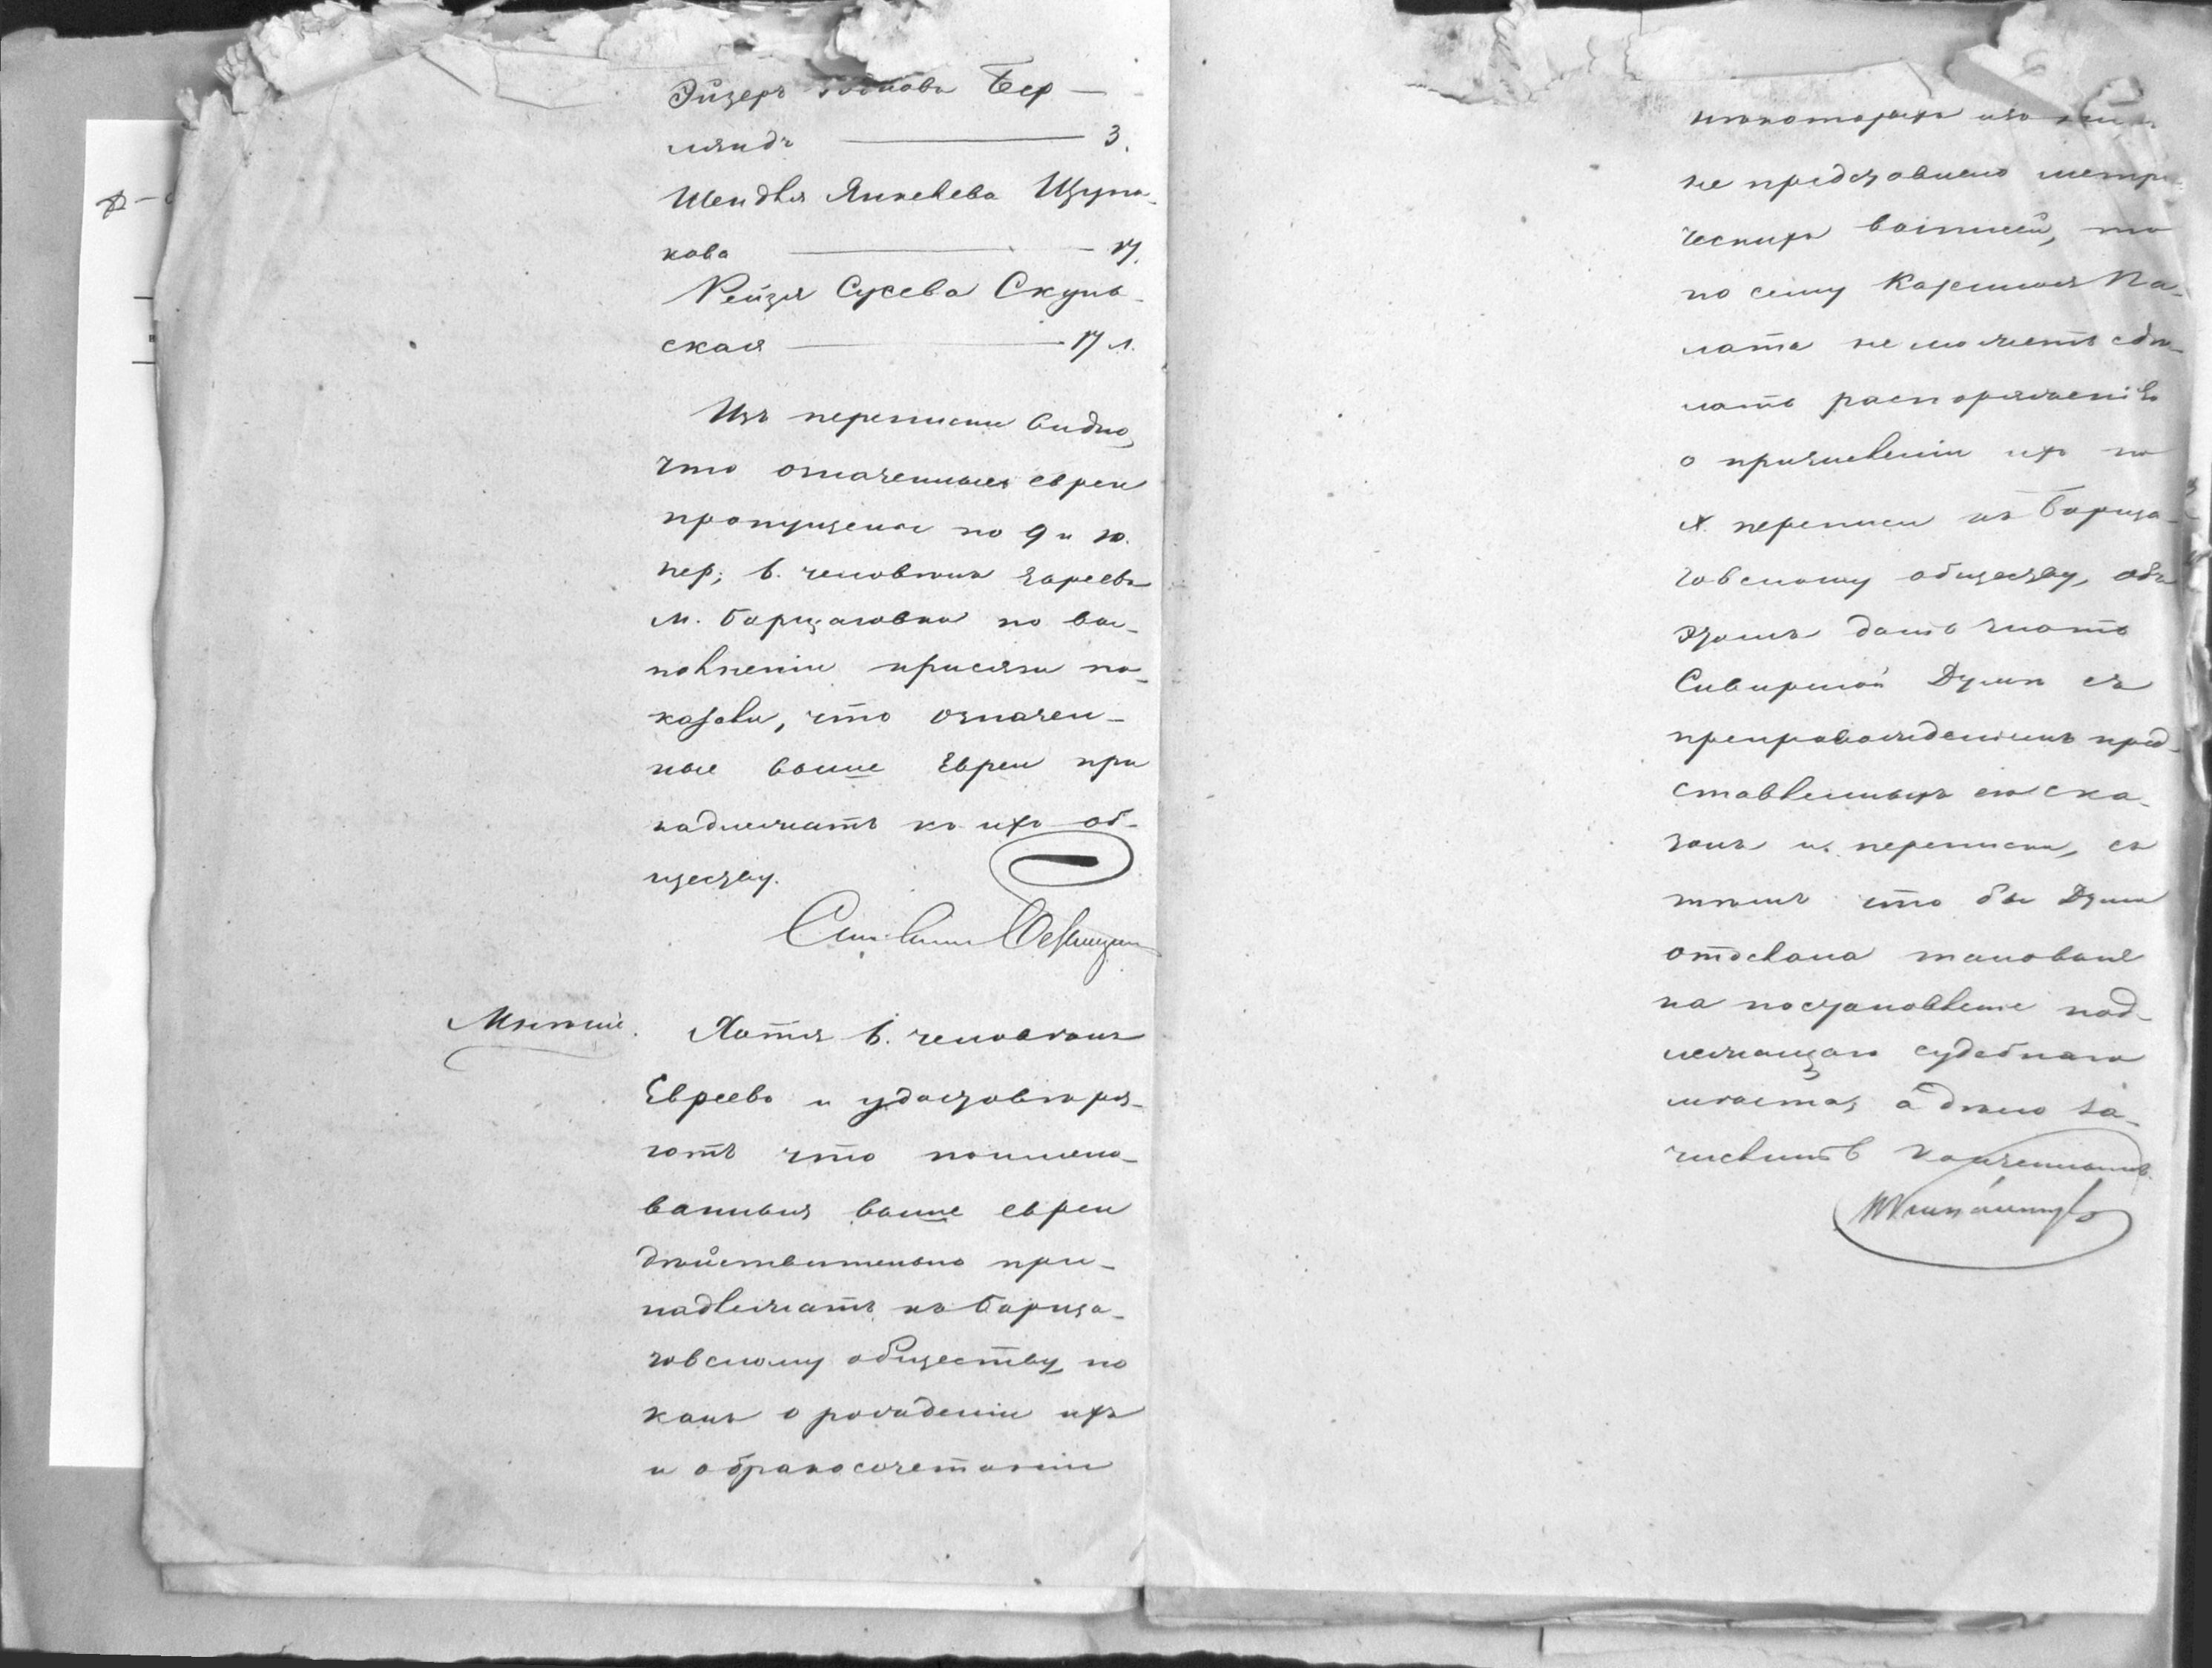 Эйзеръ Бер-
лянд 3.
Шендля Янкелева Щупа-
кова 17.
Рейзя Сухева Скуль-
ская 17 л.
Изъ переписки видно,
что означенные евреи
пропущены по 9 и 10.
пер; 6. человѣкъ Евреевъ
м. Борщаговки по вы-
полненіи присяги по-
казали, что означен-
ные выше Евреи при
надлежатъ къ ихъ об-
ществу.
Мнѣніе.
Хотя 6. человѣкъ
Евреевъ и удостовѣря-
ютъ что поимено-
ванныя выше евреи
дѣйствительно при-
надлежатъ къ Борща-
говскому обществу, но
какъ о рожденіи ихъ
и обракосочетаніи
нѣкоторыхъ изъ нихъ
не представлено метри-
ческихъ выписей, то
по сему Казенная Па-
лата не можетъ сдѣ-
лать распоряженіе
о причисленіи ихъ по
X. переписи къ Борща-
говскому обществу, объ
этомъ дать знать
Сквирской Думѣ съ
препровожденіемъ пред-
ставленныхъ ею ска-
зокъ и переписки, съ
тѣмъ что бы Дума
отослала таковые
на постановленіе над-
лежащаго судебнаго
мѣста, а дѣло за-
числить конченнымъ.